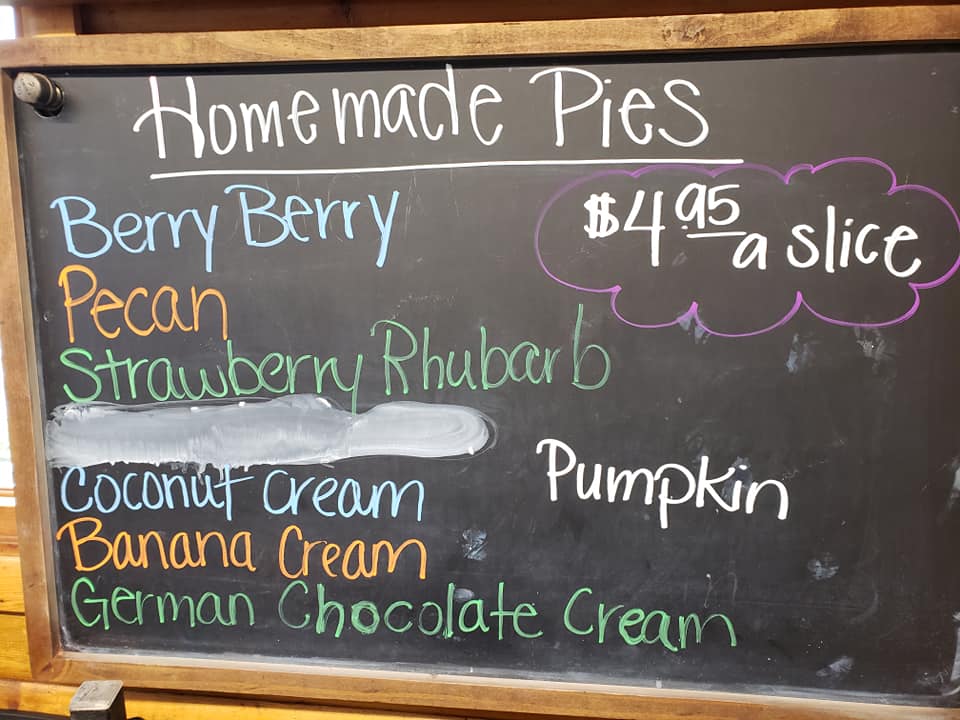 Homemade Pies
$4.95 a slice
Berry Berry
Pecan
Strawberry Rhubarb
Coconut Cream
Pumpkin
Banana Cream
German Chocolate Cream